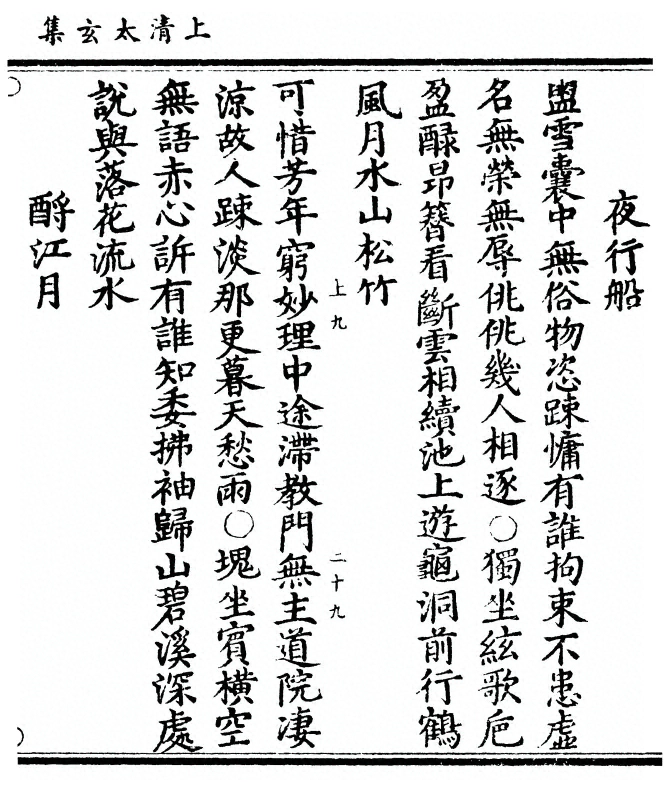 上清太玄集
夜行船
盥雪囊中無俗物恣踈慵有誰拘束不患虛
名無榮無辱俳俳幾人相逐○獨坐絃歌巵
盈醁昂簪看斷雲相續池上遊龜洞前行鶴
風月水山松竹
上九
二十九
可惜芳年窮妙理中途滯教門無主道院凄
涼故人踈淡那更暮天愁雨○塊坐賓橫空
無語赤心訴有誰知委拂袖歸山碧溪深處
說與落花流水
酹江月